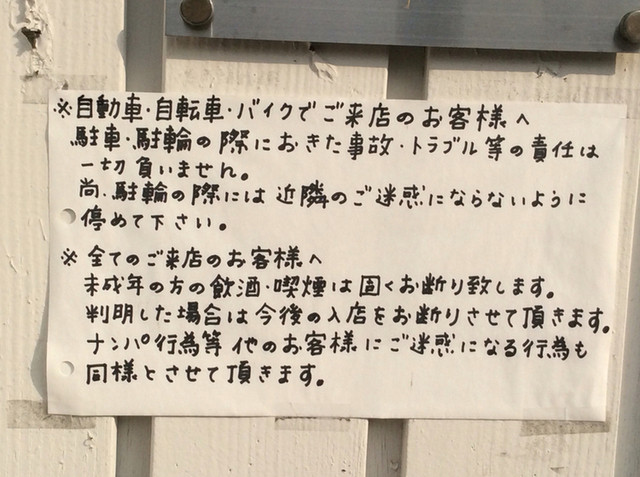 ※自動車・自転車・バイクでご来店のお客様へ
駐車・駐輪の際におきた事故・トラブル等の責任は
一切負いません。
尚、駐輪の際には近隣のご迷惑にならないように
停めて下さい。
※全てのご来店のお客様へ
未成年の方の飲酒・喫煙は固くお断り致します。
判明した場合は今後の入店をお断りさせて頂きます。
ナンパ行為等他のお客様にご迷惑になる行為も
同様とさせて頂きます。